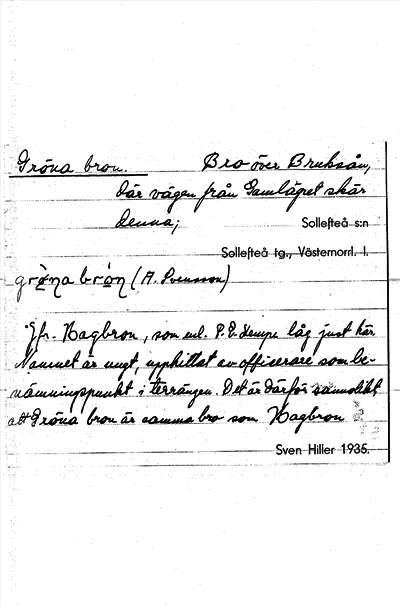 Gröna bron. Bro över Bruksån,
där vägen från Gamlägret skär
denna; Sollefteå s:n
Sollefteå tg., Västernorrl. l.
grö̀na brón (A. Svensson)
Jfr. Hagbron, som enl. P. E. Kempe låg just här
Namnet är ungt, upphittat av officerare som be-
nämningspunkt i terrängen. Det är därför sannolikt
att Gröna bron är samma bro som Hagbron
Sven Hiller 1935.